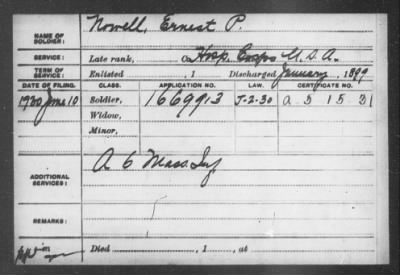 NAME OF SOLDIER: Nowell, Ernest P.
SERVICE: Late rank, Hosp. Corps U.S.A.
TERM OF SERVICE: Enlisted , 1 Discharged January , 1899
DATE OF FILING. CLASS. APPLICATION NO. LAW. CERTIFICATE NO.
1930 June 10 Soldier, 1669913 J-2-30 a 3 15 31
Widow,
Minor,
ADDITIONAL SERVICES: A 6 Mass. Inf
REMARKS:
Died , 1 , at